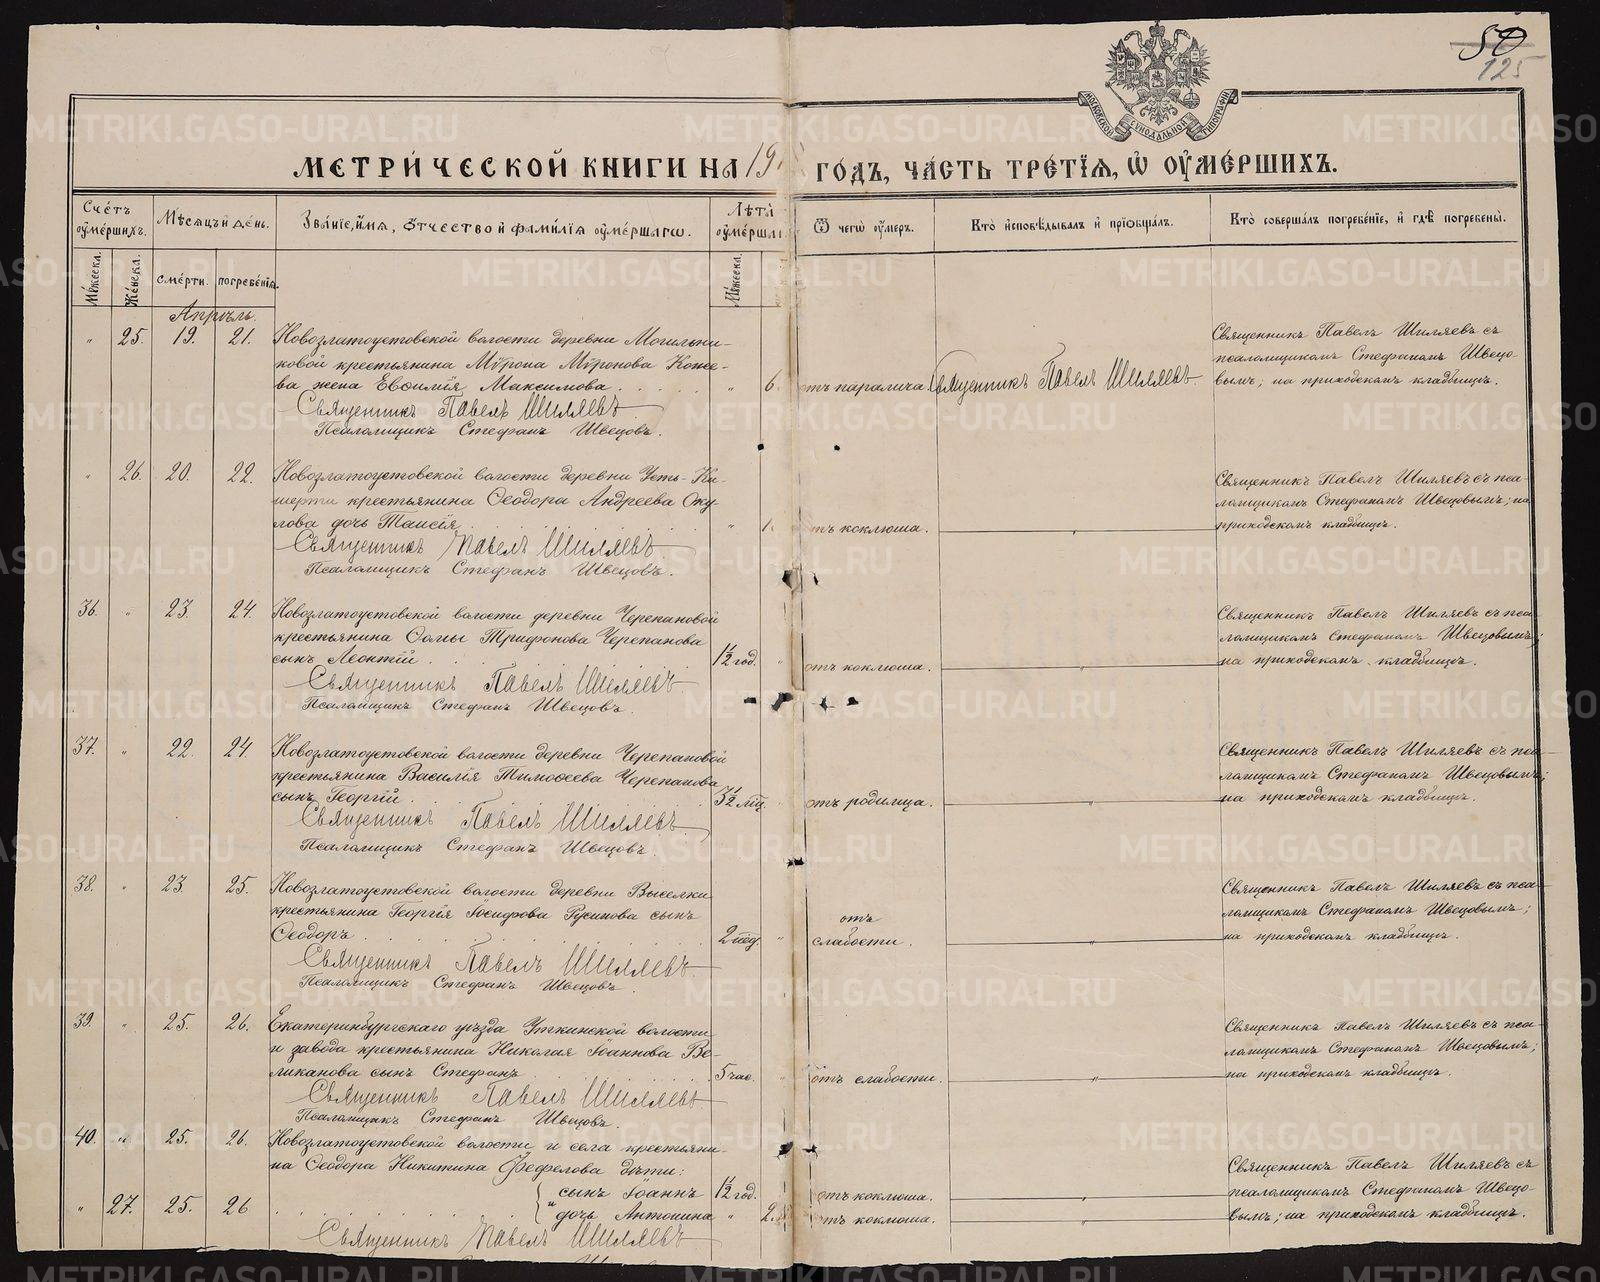 50
125
МОСКОВСКОЙ СУНОДАЛЬНОЙ ТИПОГРАФІИ
МЕТРИ́ЧЕСКОЙ КНИГИ НА 19 ГО́ДЪ, ЧА́СТЬ ТРЕ́ТІѦ, Ѽ ОУ҆МЕ́РШИХЪ.
Сче́тъ оу҆ме́ршихъ.
Мѣ́сяцъ и҆ де́нь.
Зва́нїе, и҆́мя, ѻ҆́тчество и҆ фами́лїя оу҆ме́ршагѡ.
Лѣ́та оу҆ме́рша
Ѿ чегѡ̀ оу҆́меръ.
Кто̀ и҆сповѣ́дывалъ и҆ прїѡбща́лъ.
Кто̀ соверша́лъ погребе́нїе, и҆ гдѣ̀ погребены̀.
Мꙋ́жеска.
Же́нска.
Сме́рти.
погребе́нїя.
Мꙋ́жеска.
Апрѣль.
" 25. 19. 21. Новозлатоустовской волости деревни Могильни-
ковой крестьянина Мѵрона Мѵронова Коже-
ва жена Евѳимія Максимова . . . . " 6 отъ паралича Священникъ Павелъ Шиляевъ
Священникъ Павелъ Шиляевъ
Псаломщикъ Стефанъ Швецовъ.
Священникъ Павелъ Шиляевъ съ
псаломщикомъ Стефаномъ Швецо-
вымъ; на приходскомъ кладбищѣ.
" 26. 20. 22. Новозлатоустовской волости деревни Усть-Ки-
шерти крестьянина Ѳеодора Андреева Оку-
лова дочь Таисія . . . . " 1 отъ коклюша. "
Священникъ Павелъ Шиляевъ
Псаломщикъ Стефанъ Швецовъ.
Священникъ Павелъ Шиляевъ съ пса-
ломщикомъ Стефаномъ Швецовымъ; на
приходскомъ кладбищѣ.
36. " 23. 24. Новозлатоустовской волости деревни Черепановой
крестьянина Ѳомы Трифонова Черепанова
сынъ Леонтій . . . . 1½ год. " отъ коклюша. "
Священникъ Павелъ Шиляевъ
Псаломщикъ Стефанъ Швецовъ.
Священникъ Павелъ Шиляевъ съ пса-
ломщикомъ Стефаномъ Швецовымъ;
на приходскомъ кладбищѣ.
37. " 22. 24. Новозлатоустовской волости деревни Черепановой
крестьянина Василія Тимоѳеева Черепанова
сынъ Георгій . . . . 3½ мѣц. " отъ родимца. "
Священникъ Павелъ Шиляевъ
Псаломщикъ Стефанъ Швецовъ.
Священникъ Павелъ Шиляевъ съ пса-
ломщикомъ Стефаномъ Швецовымъ;
на приходскомъ кладбищѣ.
38. " 23 25. Новозлатоустовской волости деревни Выселки
крестьянина Георгія Іосифова Русинова сынъ
Ѳеодоръ . . . . 2 нед. " отъ слабости. "
Священникъ Павелъ Шиляевъ
Псаломщикъ Стефанъ Швецовъ.
Священникъ Павелъ Шиляевъ съ пса-
ломщикомъ Стефаномъ Швецовымъ;
на приходскомъ кладбищѣ.
39. " 25. 26. Екатеринбургскаго уѣзда Уткинской волости
и завода крестьянина Николая Іоаннова Ве-
ликанова сынъ Стефанъ . . . . 5 час. отъ слабости. "
Священникъ Павелъ Шиляевъ
Псаломщикъ Стефанъ Швецовъ.
Священникъ Павелъ Шиляевъ съ пса-
ломщикомъ Стефаномъ Швецовымъ;
на приходскомъ кладбищѣ.
40. " 25. 26. Новозлатоустовской волости и села крестьяни-
на Ѳеодора Никитина Фефелова дѣти:
сынъ Іоаннъ 1½ год. отъ коклюша. "
" 27. 25. 26 . . . . дочь Антонина " 2 отъ коклюша. "
Священникъ Павелъ Шиляевъ
Священникъ Павелъ Шиляевъ съ
псаломщикомъ Стефаномъ Швецо-
вымъ; на приходскомъ кладбищѣ.
METRIKI.GASO-URAL.RU